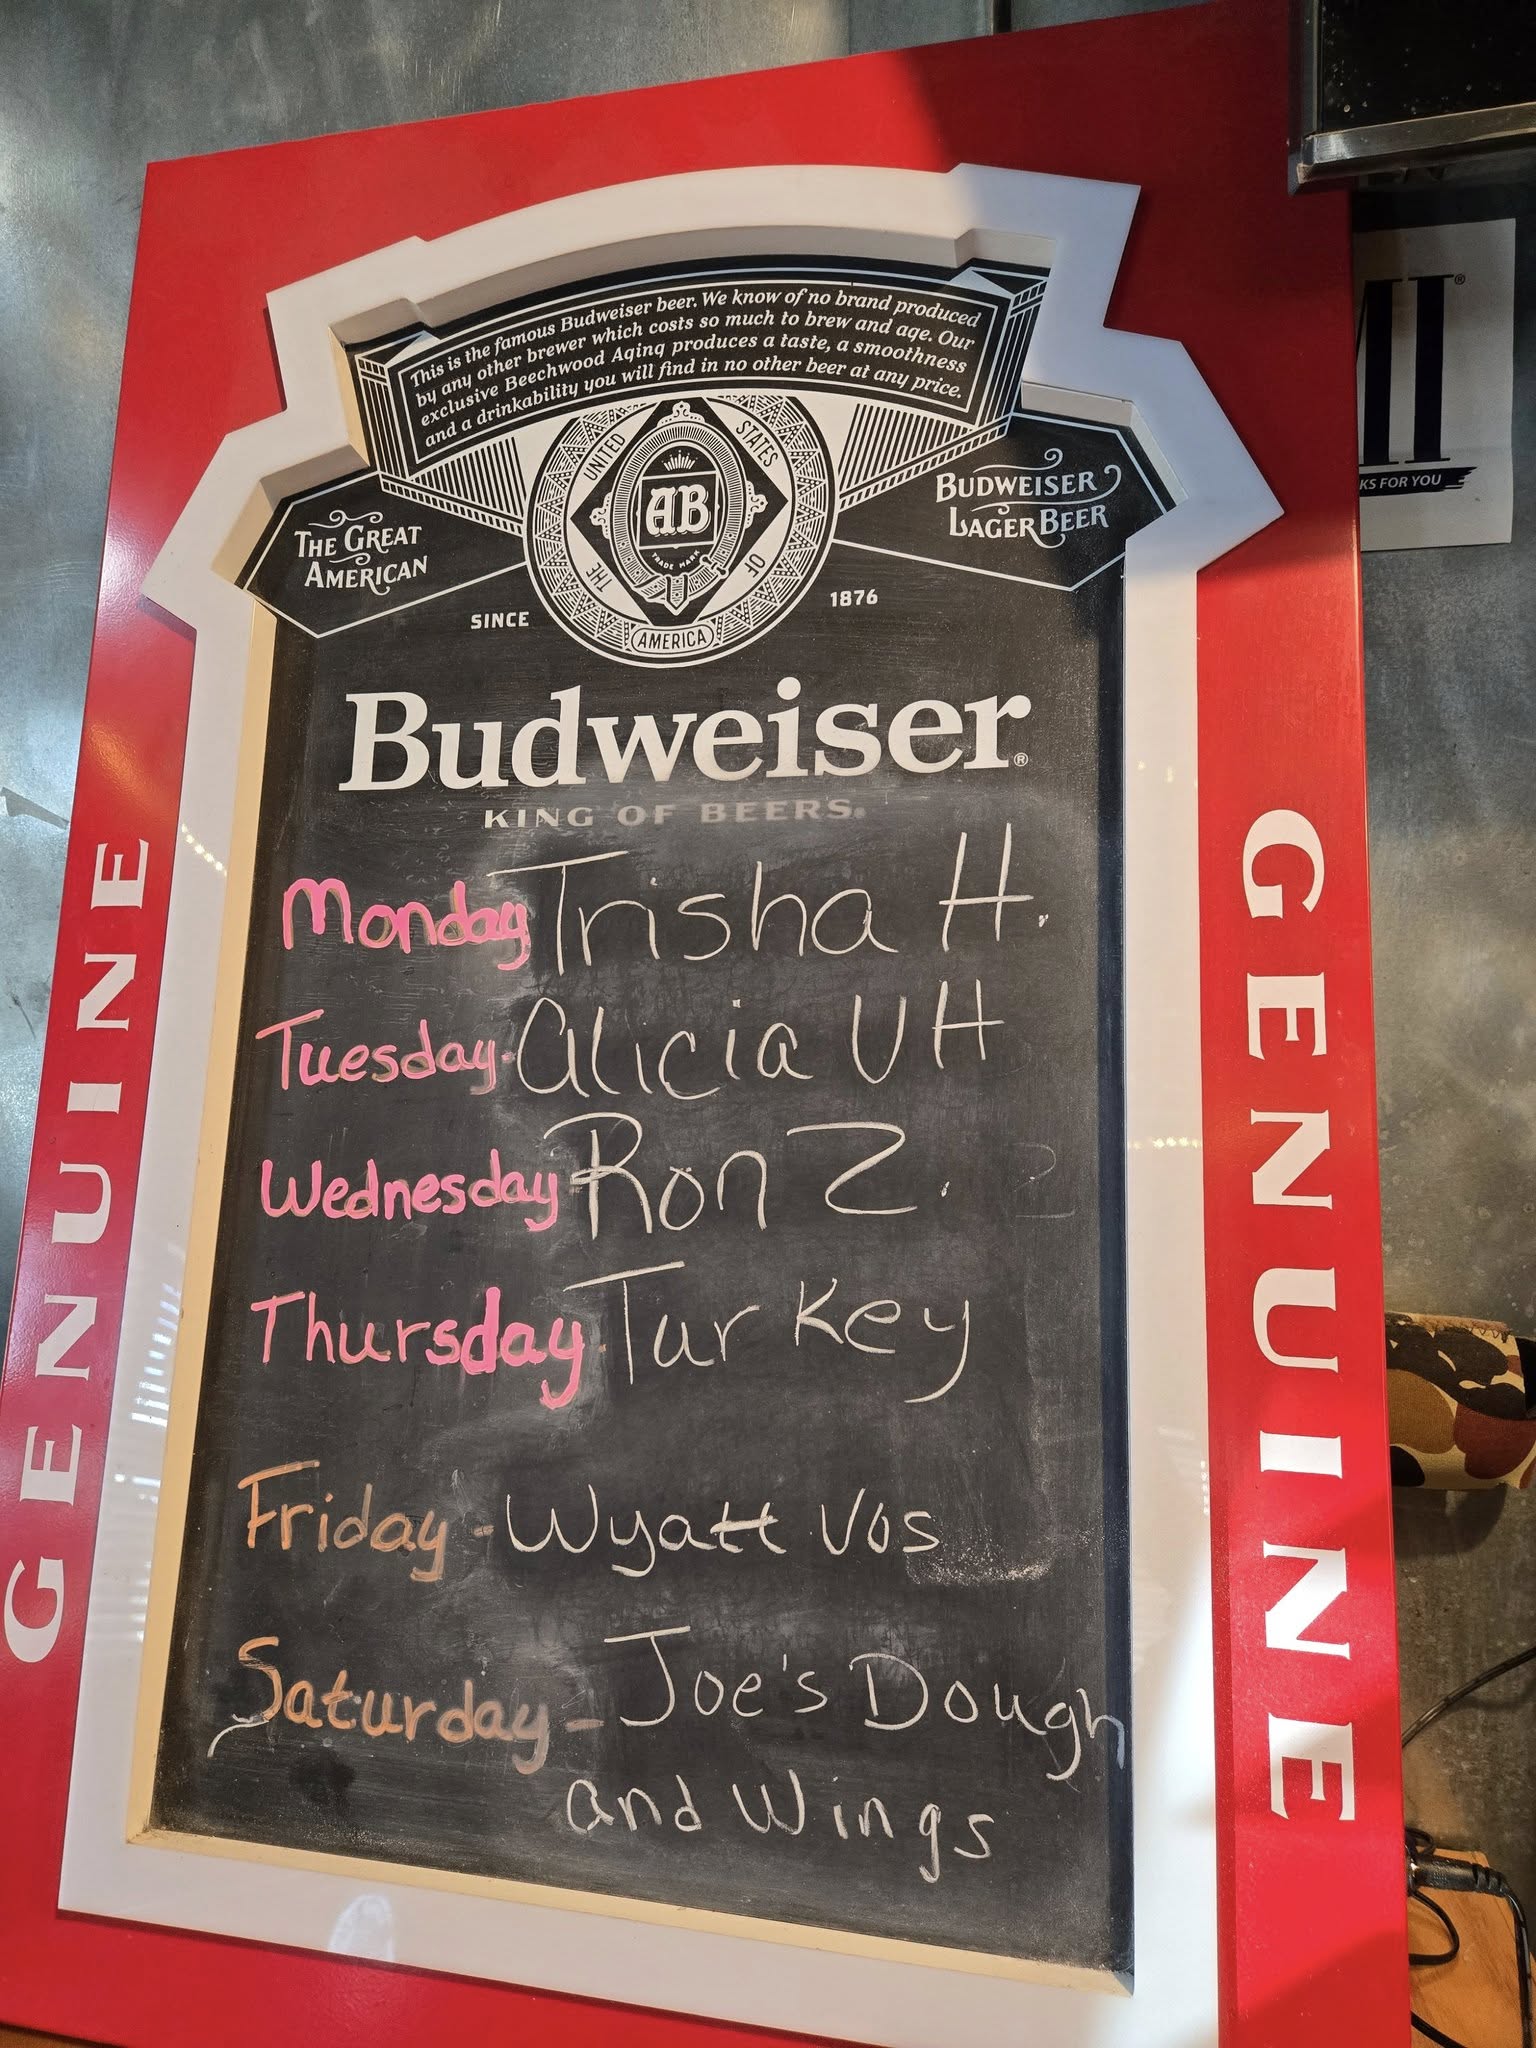 This is the famous Budweiser beer. We know of no brand produced
by any other brewer which costs so much to brew and age. Our
exclusive Beechwood Aging produces a taste, a smoothness
and a drinkability you will find in no other beer at any price.
THE UNITED STATES OF AMERICA
AB
TRADE MARK
THE GREAT
AMERICAN
BUDWEISER
LAGER BEER
SINCE 1876
Budweiser®
KING OF BEERS®
Monday Trisha H.
Tuesday- Alicia VH
Wednesday- Ron Z.
Thursday- Turkey
Friday - Wyatt Vos
Saturday - Joe's Dough
and Wings
GENUINE
GENUINE
®
KS FOR YOU